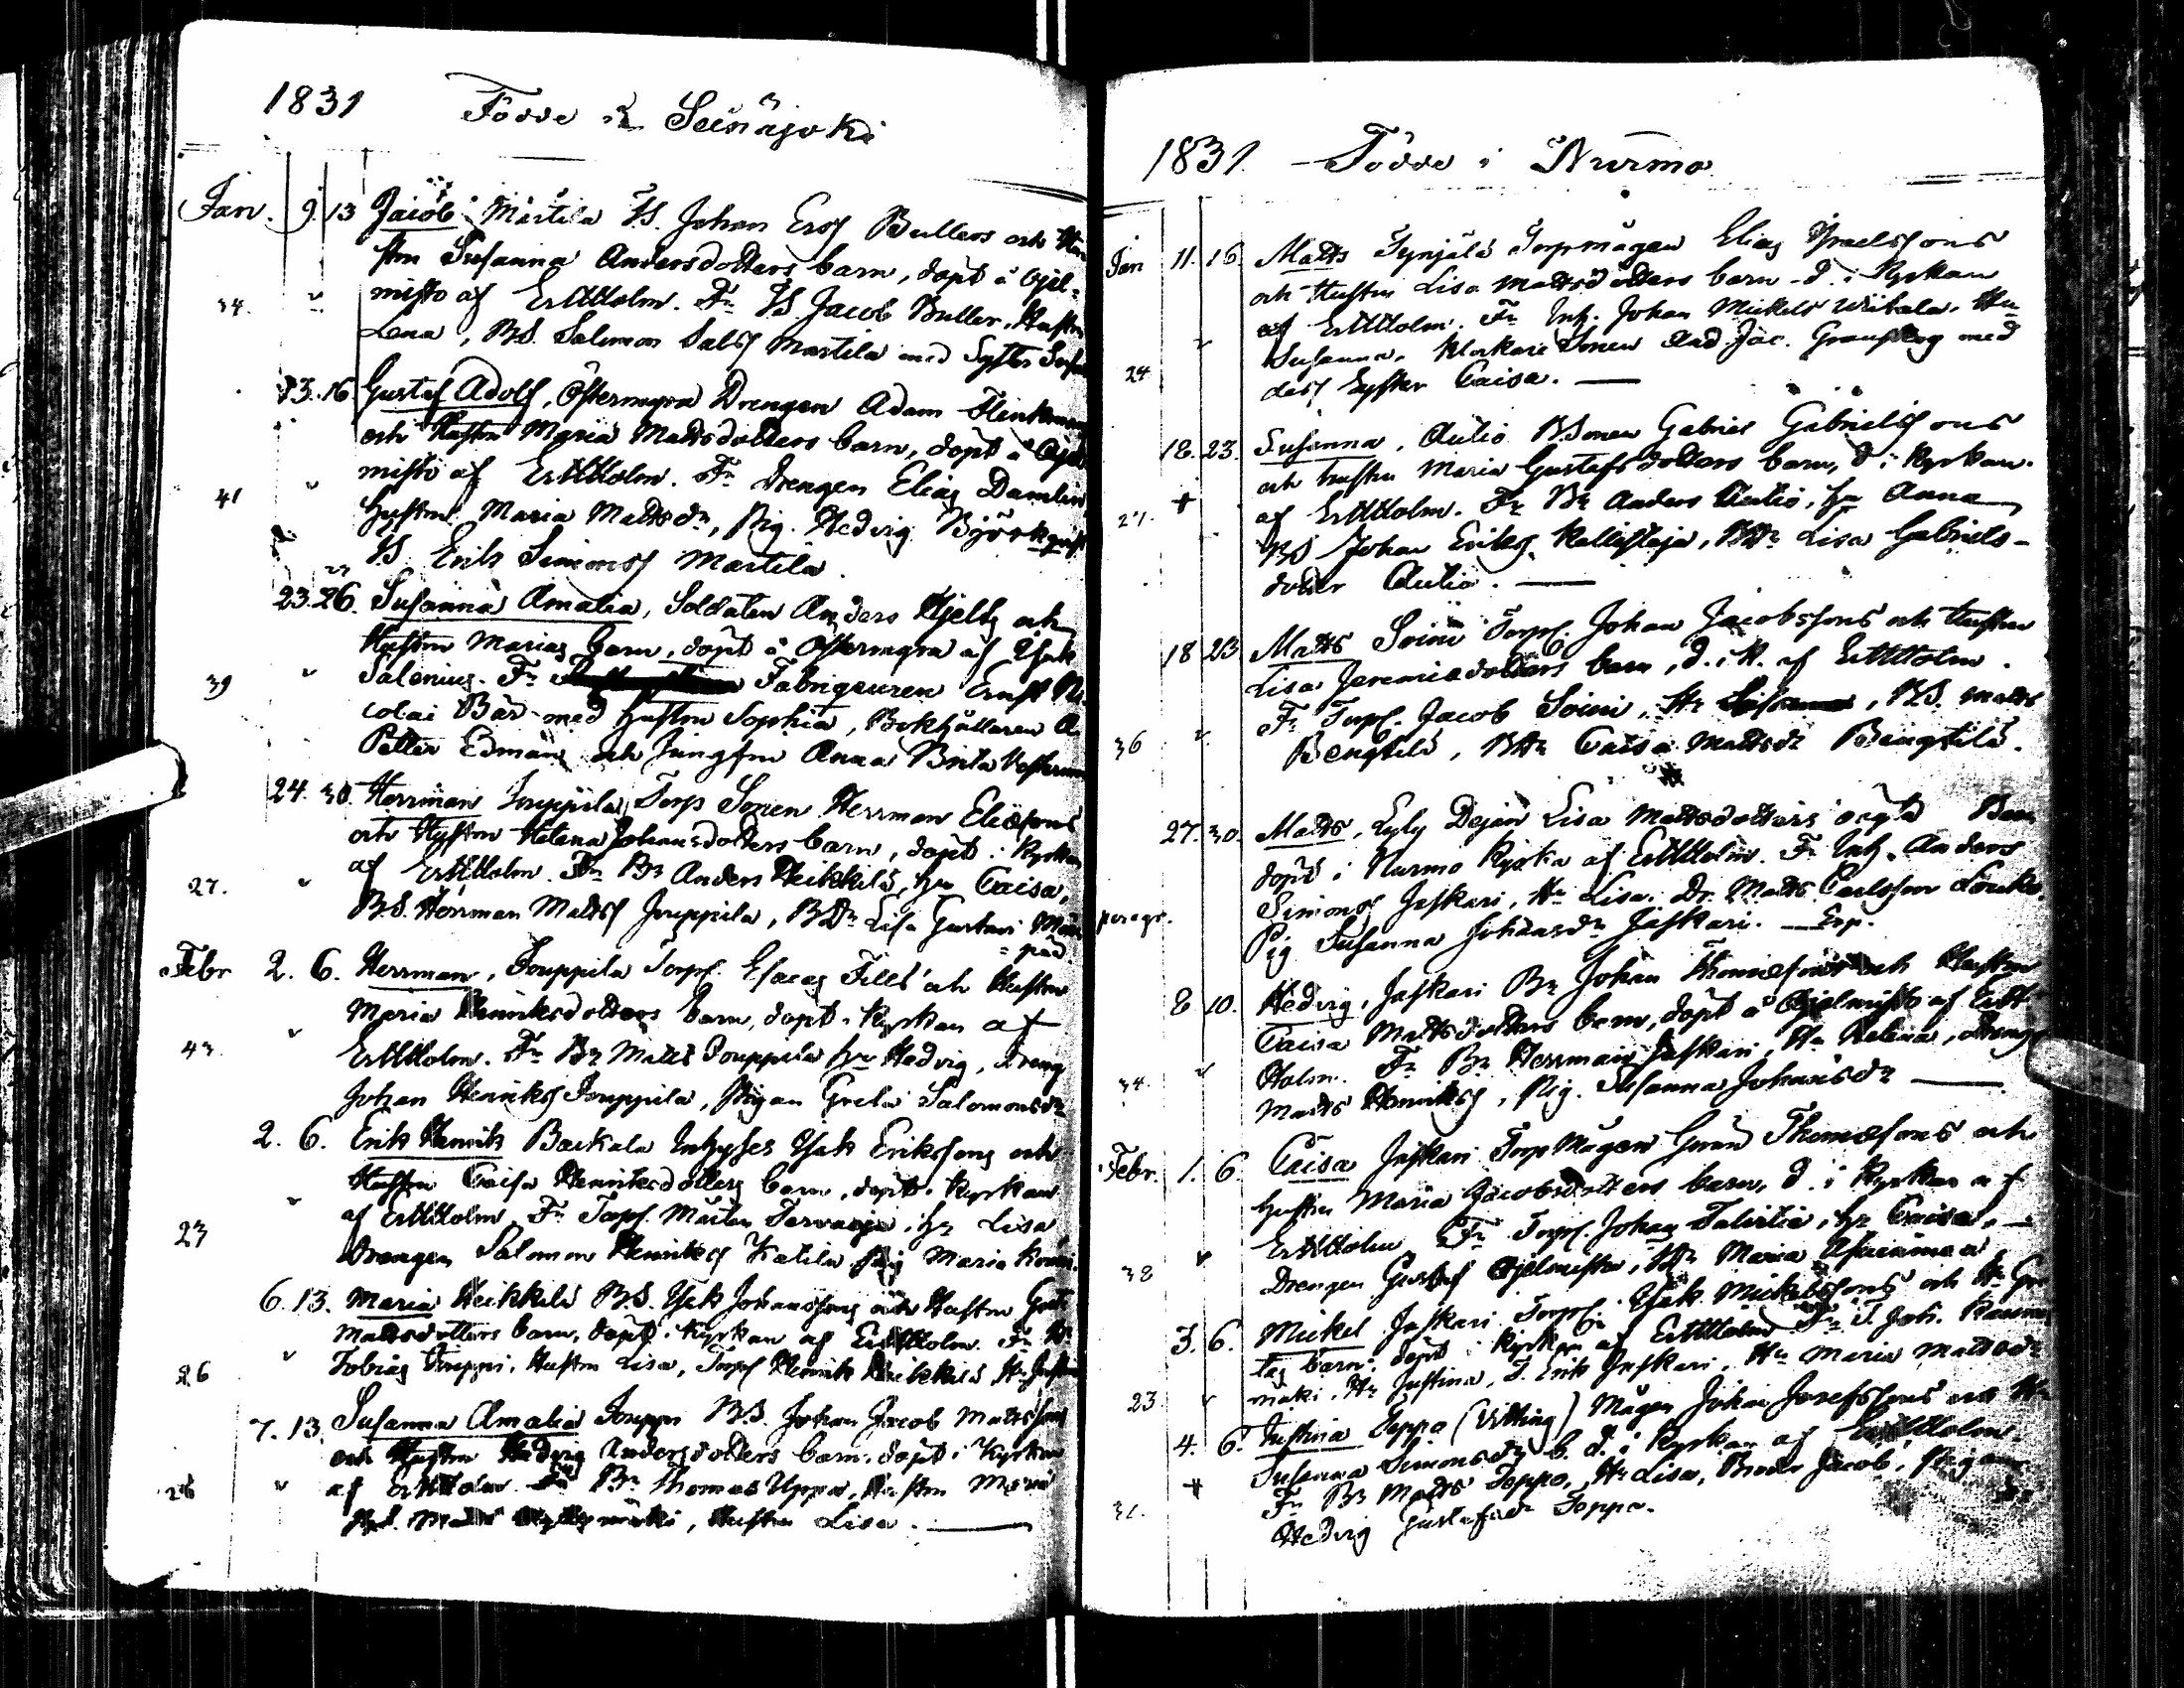 1831 Födde i Seinäjoki
Jan. 9. 13 Jacob Martila BS. Johan Erss Bullers och Hu
stru Susanna Andersdotters barn, döpt å Öjel-
34. misto af ErHHolm. Fr BS Jacob Buller, Hustru
Lena, BS. Salomon Sals Martila med Syster
13. 16. Gustaf Adolf, Östermyra Drengen Adam
och Hustru Maria Mattsdotters barn, döpt å
misto af ErHHolm. Fr drengen Elias Damlin
41 hustru Maria Mattsdr, Pig. Hedvig Björkqvist
BS Erik Simonss Martila
23. 26. Susanna Amalia, Soldaten Anders Hjelts och
Hustru Marias barn, döpt å Östermyra af Isak
39 Salenius. Fr Fabriqeuren Ernst Ni
colai Bär med hustru Sophia, Bokhållaren A.
Petter Edman och Jungfru Anna Brita
24. 30. Herrman Jouppila Torp Sonen Herrman Eliæsons
och Hustru Helena Johansdotters barn, döpt i Kyrkan
27. af ErHHolm. Fr Br Anders Heikkilä, hu Caisa,
BS. Herrman Matts Jouppila, BDr Lisa Gustavi
pää
Febr 2. 6. Herrman, Jouppila Torp. Esaias Fills och Hustru
Maria Henriksdotters barn, döpt i Kyrkan af
43. ErHHolm. Fr Br Matts Jouppila hu Hedvig, dreng
Johan Henriks Jouppila, Pigan Greta Salomonsdr
2. 6. Erik Henrik Backala Inhyses Isak Erikssons och
Hustru Caisa Henriksdotters barn, döpt i Kyrkan
23 af ErHHolm Fr Torp. Mårten Tervaoja, hu Lisa
Drengen Salomon Henriks Katila pig Maria
6. 13. Maria Heikkilä B.S. Isak Johanssons och Hustru
Mattsdotters barn, döpt i Kyrkan af ErHHolm. Fr
26 Tobias Jouppi, Hustru Lisa, Torp Henrik Heikkilä
7. 13. Susanna Amalia Jouppi B.S. Johan Jacob Mattssons
och Hustru Hedvig Andersdotters barn, döpt i Kyrkan
26 af ErHHolm Fr Br Thomas Uppa, Hustru Maria
Hustru Lisa.
1831. Födde i Nurmo
Jan 11. 16. Matts Tynjälä Torpmågen Elias Israelssons
och Hustru Lisa Mattsdotters barn d. i Kyrkan
af ErHHolm. Fr Inh. Johan Mickels Wiitala, Hu
24 Susanna, Klockare Sonen And Jac. med
dess Syster Caisa.
18. 23. Susanna, Autio BSonen Gabriel Gabrielssons
och hustru Maria Gustafsdotters barn, d. i Kyrkan
27. + af ErHHolm. Fr Br Anders Autio, hu Anna
BS Johan Eriks Kallistaja, BDr Lisa Gabriels-
dotter Autio.
18 23 Matts Soini Torp. Johan Jacobssons och Hustru
Lisa Jeremiædotters barn, d. i K. af ErHHolm.
Fr Torp. Jacob Soini, Hu , BS. Matts
36 Bengtilä, BDr Caisa Mattsdr Bengtilä.
27. 30. Matts, Lyly Dejan Lisa Mattsdotters oägta Barn
döpt i Nurmo Kyrka af ErHHolm. Fr Inh. Anders
Simons Jaskari, Hu Lisa. Dr. Matts Carlsson
Pig Susanna Johansdr Jaskari.
8 10. Hedvig, Jaskari Br Johan Thomæsons och Hustru
Caisa Mattsdotters barn, döpt å Öjelmisto af ErH
34. Holm. Fr Br Herrman Jaskari, Hu Helena, Dreng
Matts Henriks, Pig. Susanna Johansdr
Febr. 1. 6. Caisa Jaskari Torp Mågen Thomæsons och
hustru Maria Jacobsdotters barn, d. i Kyrkan af
ErHHolm Fr Torp. Johan Talvitie, hu Caisa,
38 Drengen Gustaf Öjelmisto, Maria
3. 6. Mickel Jaskari Torp. Isak Mickelssons och Hu
tas barn, döpt i Kyrkan af ErHHolm Fr T. Joh.
mäki, Hu Justina, T. Erik Jaskari, Hu Maria Mattsdr
23. 4. 6. Justina Seppo (Utting) Mågen Johan Josefssons och
Susanna Simonsdr b. d. i Kyrkan af ErHHolm.
+ Fr Br Matts Seppo, Hu Lisa, Broder Jacob, Pigan
Hedvig Gustafsdr Seppo.